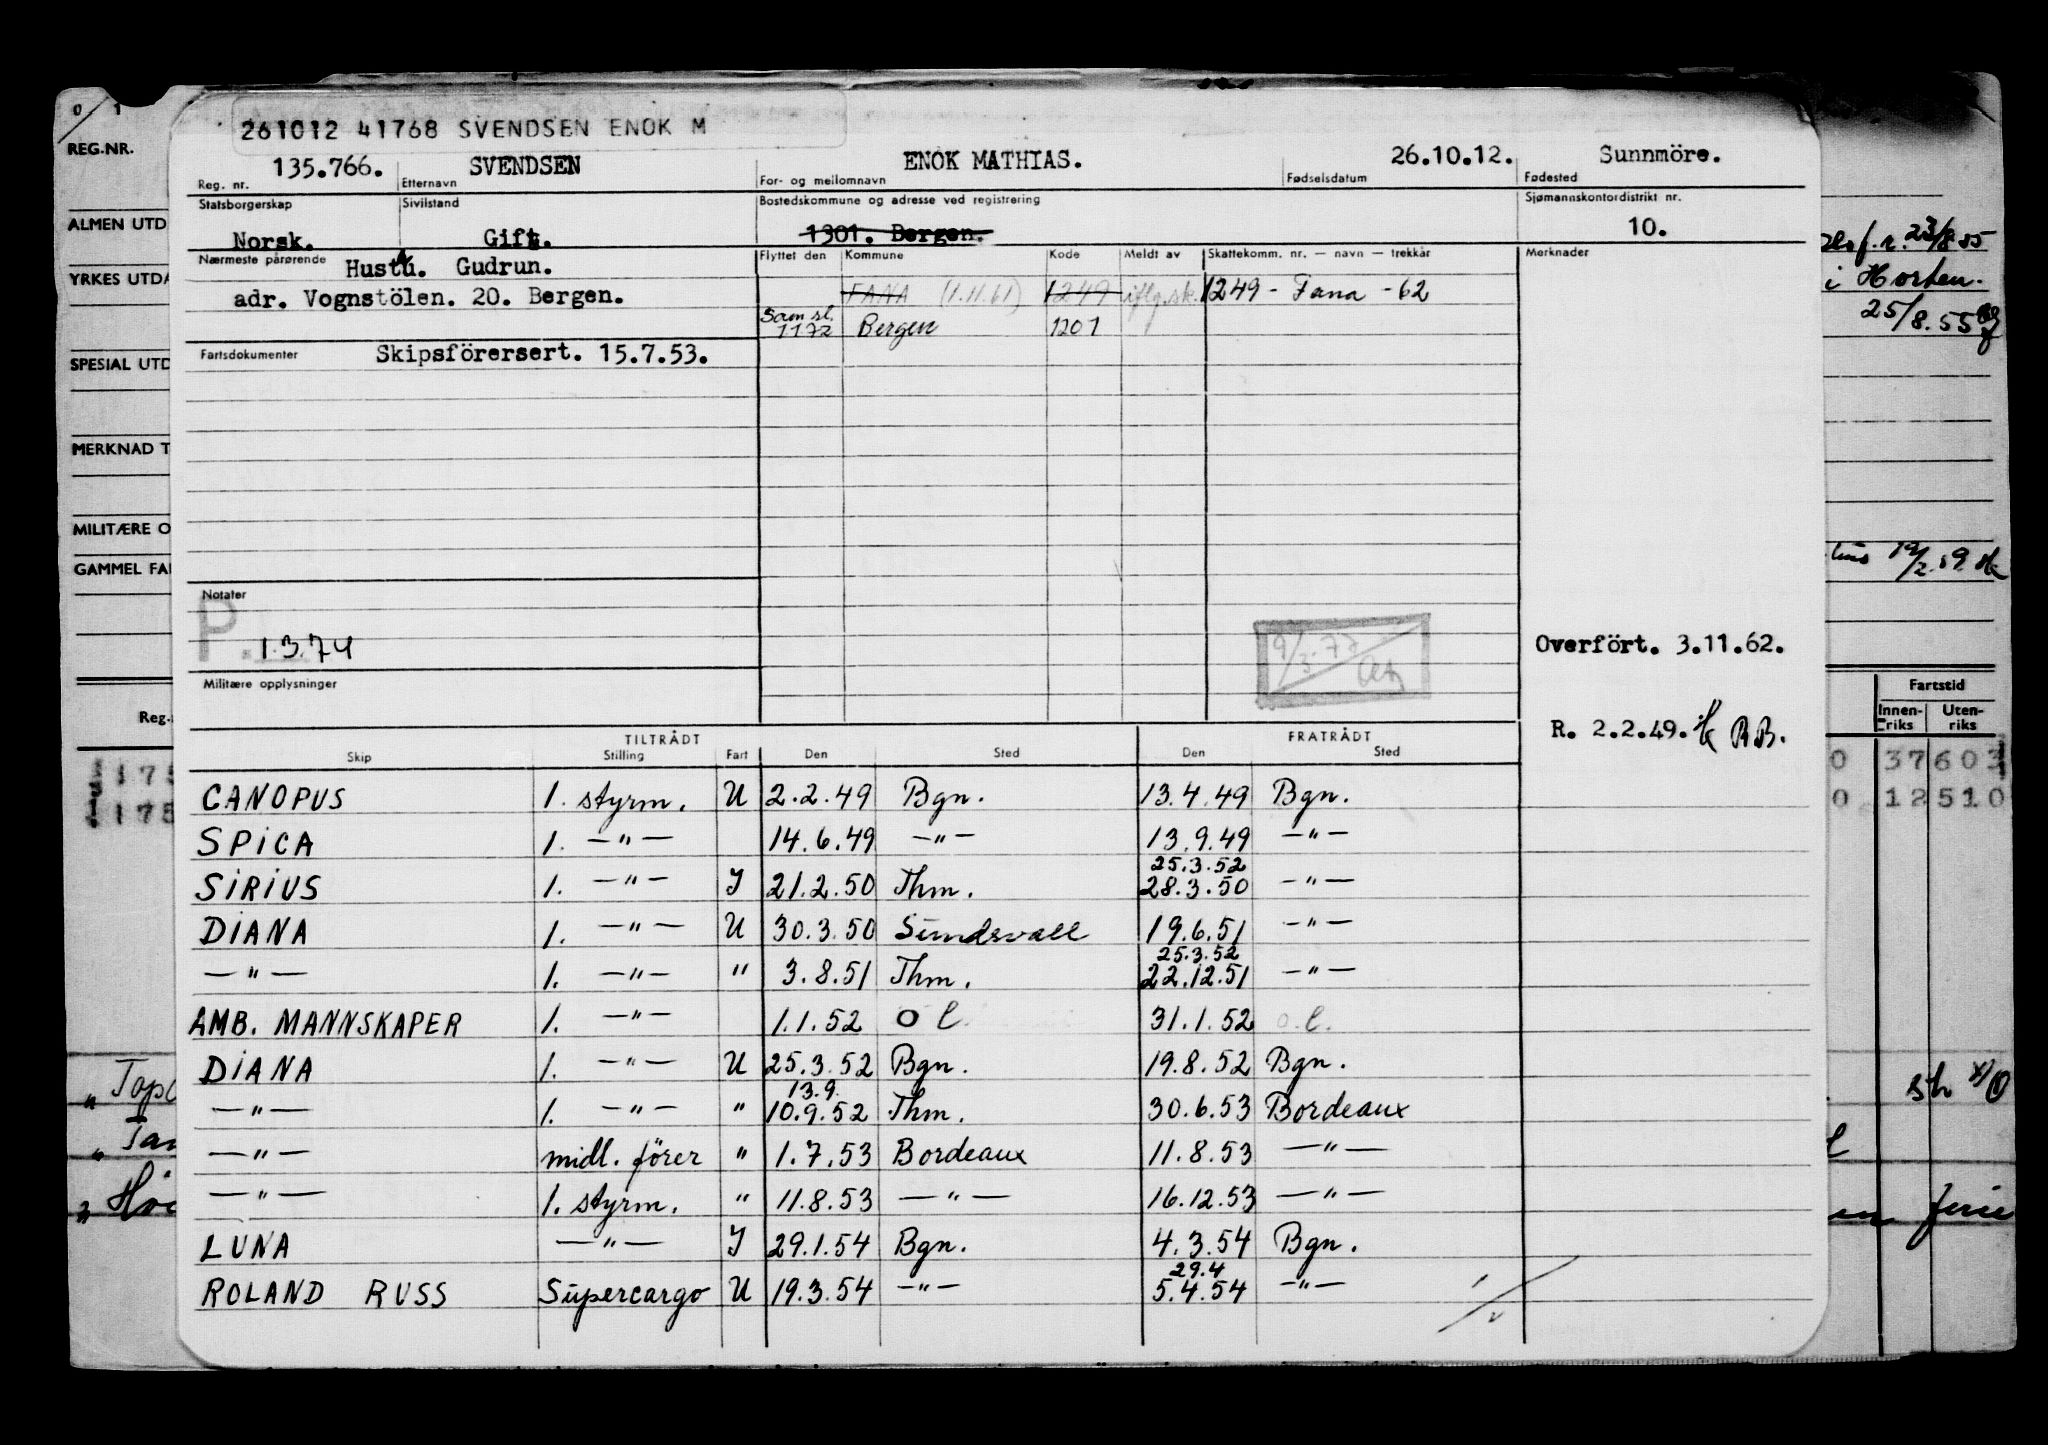 0/1
261012 41768 SVENDSEN ENOK M
REG.NR.
135.766. SVENDSEN ENOK MATHIAS. 26.10.12. Sunnmöre.
Reg. nr. Etternavn For- og mellomnavn Fødselsdatum Fødested
Statsborgerskap Sivilstand Bostedskommune og adresse ved registrering Sjømannskontordistrikt nr.
ALMEN UTD
Norsk. Gift. 1301. Bergen. 10.
23/8 55
Nærmeste pårørende Hustu. Gudrun. Flyttet den Kommune Kode Meldt av Skattekomm. nr. — navn — trekkår Merknader
YRKES UTDA
i Horten.
adr. Vognstölen. 20. Bergen. FANA (1.11.61) 1249 iflg.sk. 1249 - Fana -62
25/8.55
Sam sl. 1172 Bergen 1201
Fartsdokumenter Skipsförersert. 15.7.53.
SPESIAL UTD
MERKNAD T
MILITÆRE O
GAMMEL FA
19/2.59
Notater
P. 1.3.74
9/3-77
Overført. 3.11.62.
Militære opplysninger
Fartstid
Innenriks Utenriks
Reg.
R. 2.2.49. RB.
TILTRÅDT FRATRÅDT
Skip Stilling Fart Den Sted Den Sted
175 0 37 603
CANOPUS 1. styrm. U 2.2.49 Bgn. 13.4.49 Bgn.
175 0 12 510
SPICA 1. —"— 14.6.49 —"— 13.9.49 —"—
25.3.52
SIRIUS 1. —"— I 21.2.50 Thm. 28.3.50 —"—
DIANA 1. —"— U 30.3.50 Sundsvall 19.6.51 —"—
25.3.52
—"— 1. —"— " 3.8.51 Thm. 22.12.51 —"—
AMB. MANNSKAPER 1. —"— 1.1.52 O l. 31.1.52 o.l.
DIANA 1. —"— U 25.3.52 Bgn. 19.8.52 Bgn.
13.9.
—"— 1. —"— " 10.9.52 Thm. 30.6.53 Bordeaux
—"— midl. förer " 1.7.53 Bordeaux 11.8.53 —"—
—"— 1. styrm. " 11.8.53 —"— 16.12.53 —"—
ferie
LUNA —"— I 29.1.54 Bgn. 4.3.54 Bgn.
29.4
ROLAND RUSS Supercargo U 19.3.54 —"— 5.4.54 —"—